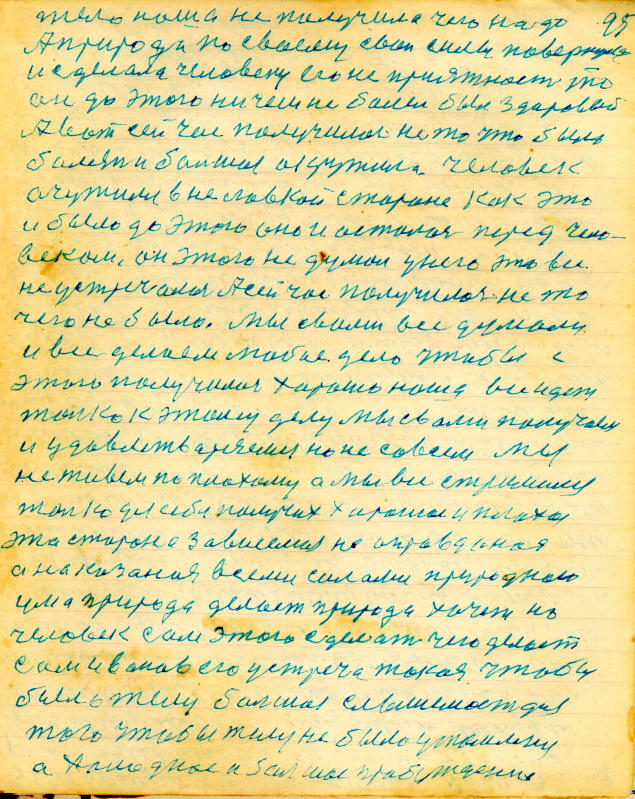 тело наша не получила чего надо 95
А природа по своему свои силы повернула
и сделала человеку его не приятност что
он до этого ничем не болел был здаровый
А вот сей час получилос не то что было
болезни болшая окружила. человек
очутился в не ловкой стороне как это
и было до этого оно и осталос перед чело-
веком, он этого не думал у него это все
не устречалос А сей час получилос не то
чего не было. Мы свами все думали
и все делаем любое дело чтобы с
этого получилос хорошо наша все идет
толко к этому делу мы свами получаем
и удовлетваряемся но не совсем мы
не живем по плохому а мы все стримимся
толко для себя получит хорошая и плохая
эта сторона зависемая не оправданая
а наказаная всеми силами природного
ума природа делает природа хочет но
человек сам этого сделат чего делает
сам Иванов его устреча такая чтобы
было телу болшая для
того чтобы телу не было
а холодное и болшое пробуждение